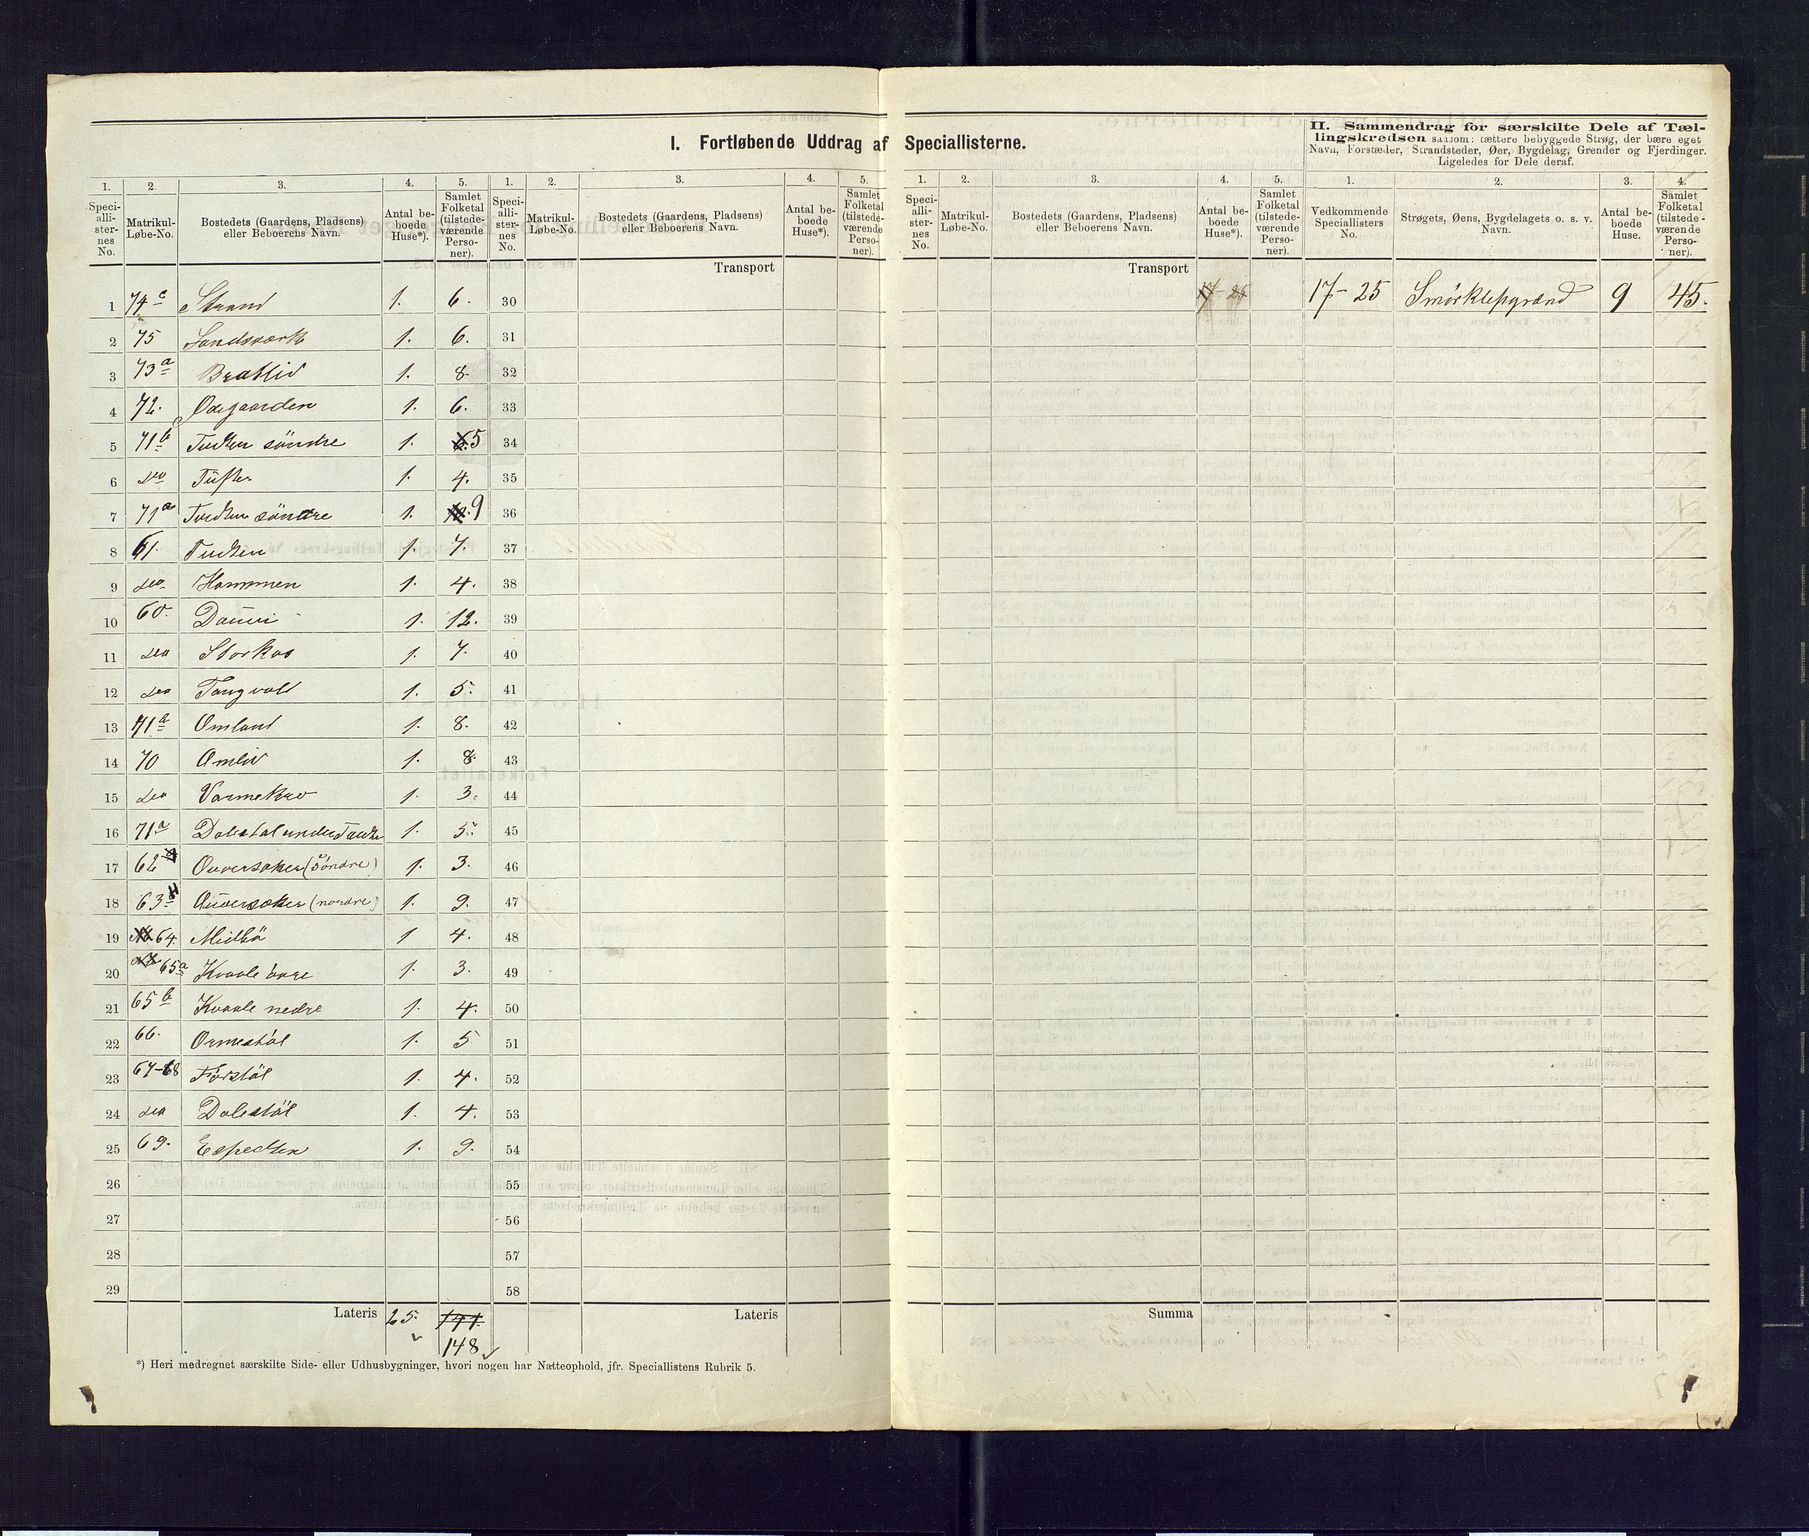 I. Fortløbende Uddrag af Speciallisterne.
II. Sammendrag for særskilte Dele af Tællingskredsen saasom: tættere bebyggede Strøg, der bære eget
Navn, Forstæder, Strandsteder, Øer, Bygdelag, Grender og Fjerdinger.
Ligeledes for Dele deraf.
1. 2. 3. 4. 5. 1. 2. 3. 4. 5. 1. 2. 3. 4. 5. 1. 2. 3. 4.
Speciallisternes No. Matrikul-Løbe-No. Bostedets (Gaardens, Pladsens) eller Beboerens Navn. Antal beboede Huse*). Samlet Folketal (tilstedeværende Personer).
Speciallisternes No. Matrikul-Løbe-No. Bostedets (Gaardens, Pladsens) eller Beboerens Navn. Antal beboede Huse*). Samlet Folketal (tilstedeværende Personer).
Speciallisternes No. Matrikul-Løbe-No. Bostedets (Gaardens, Pladsens) eller Beboerens Navn. Antal beboede Huse*). Samlet Folketal (tilstedeværende Personer).
Vedkommende Speciallisters No. Strøgets, Øens, Bygdelagets o. s. v. Navn. Antal beboede Huse. Samlet Folketal (tilstedeværende Personer).
Transport Transport
1 74c Strand 1. 6. 30 17-25 17-25 Smörklepgrænd 9 45.
2 75 Landsværk 1. 6. 31
3 73a Bratlid 1. 8. 32
4 72. Ödegaarden 1. 6. 33
5 71b Tvedten söndre 1. 5 34
6 do Tufter 1. 4. 35
7 71a Tvedten söndre 1. 9 36
8 61. Tvedten 1. 7. 37
9 do Hammen 1. 4. 38
10 60. 1. 12. 39
11 do Storkaas 1. 7. 40
12 do Tangvald 1. 5. 41
13 71b Omland 1. 8. 42
14 70 Amlid 1. 8. 43
15 do 1. 3. 44
16 71a Dalestöl under Tvedten 1. 5. 45
17 62 (Söndre) 1. 3. 46
18 63 (nordre) 1. 9. 47
19 64. Midbö 1 4. 48
20 65a Kvaale övre 1. 3. 49
21 65b Kvaale nedre 1. 4. 50
22 66. Ormestöl 1. 5 51
23 67-68 Förstöl 1. 4. 52
24 do Dalestöl 1. 4. 53
25 69. Espedten 1. 9. 54
26 55
27 56
28 57
29 58
Lateris 25. 141 Lateris Summa
148
*) Heri medregnet særskilte Side- eller Udhusbygninger, hvori nogen har Natteophold, jfr. Speciallistens Rubrik 5.